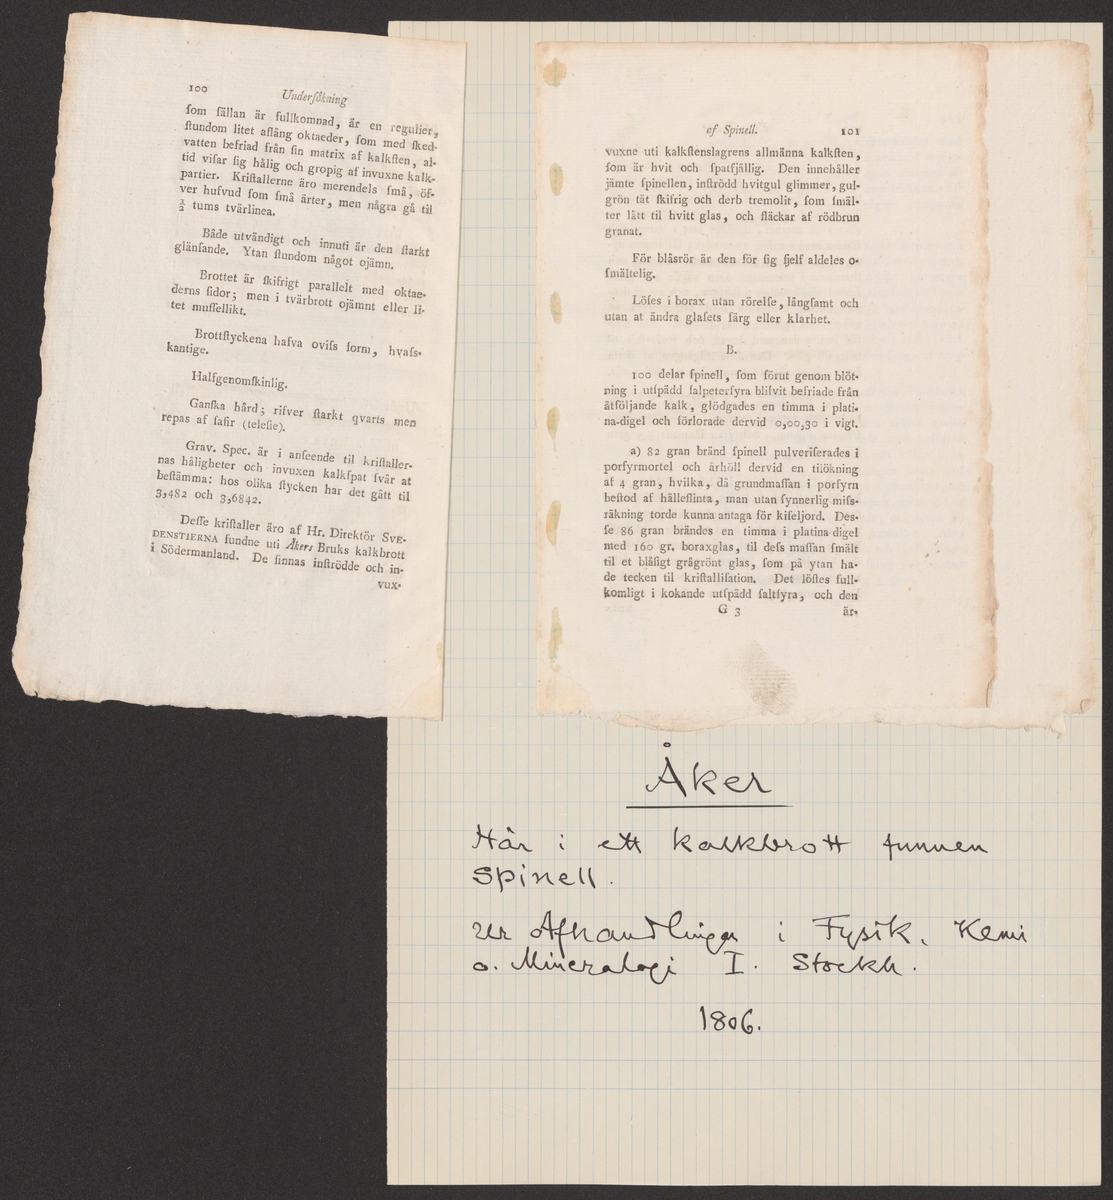 100
Underſökning
ſom ſällan är fullkomnad, är en regulier,
ſtundom litet aflång oktaeder, ſom med ſked-
vatten befriad från ſin matrix af kalkſten, al-
tid viſar ſig hålig och gropig af invuxne kalk-
partier. Kriſtallerne äro merendels ſmå, öf-
ver hufvud ſom ſmå ärter, men några gå til
½ tums tvärlinea.
Både utvändigt och innuti är den ſtarkt
glänſande. Ytan ſtundom något ojämn.
Brottet är ſkifrigt parallelt med oktae-
derns ſidor; men i tvärbrott ojämnt eller li-
tet muſſellikt.
Brottſtyckena hafva oviſs form, hvaſs-
kantige.
Halfgenomſkinlig.
Ganſka hård; rifver ſtarkt qvarts men
repas af ſafir (teleſie).
Grav. Spec. är i anſeende til kriſtaller-
nas håligheter och invuxen kalkſpat ſvår at
beſtämma: hos olika ſtycken har det gått til
3,482 och 3,6842.
Deſſe kriſtaller äro af Hr. Direktör SVE-
DENSTIERNA fundne uti Åkers Bruks kalkbrott
i Södermanland. De finnas inſtrödde och in-
vux-
af Spinell.
101
vuxne uti kalkſtenslagrens allmänna kalkſten,
ſom är hvit och ſpatfjällig. Den innehåller
jämte ſpinellen, inſtrödd hvitgul glimmer, gul-
grön tät ſkifrig och derb tremolit, ſom ſmäl-
ter lätt til hvitt glas, och fläckar af rödbrun
granat.
För blåsrör är den för ſig ſjelf aldeles o-
ſmältelig.
Löſes i borax utan rörelſe, långſamt och
utan at ändra glaſets färg eller klarhet.
B.
100 delar ſpinell, ſom förut genom blöt-
ning i utſpädd ſalpeterſyra blifvit befriade från
åtföljande kalk, glödgades en timma i plati-
na-digel och förlorade dervid 0,00,30 i vigt.
a) 82 gran bränd ſpinell pulveriſerades i
porfyrmortel och ärhöll dervid en tilökning
af 4 gran, hvilka, då grundmaſſan i porfyrn
beſtod af hälleflinta, man utan ſynnerlig miſs-
räkning torde kunna antaga för kiſeljord. Des-
ſe 86 gran brändes en timma i platina-digel
med 160 gr. boraxglas, til deſs maſſan ſmält
til et blåſigt grågrönt glas, ſom på ytan ha-
de tecken til kriſtalliſation. Det löſtes full-
komligt i kokande utſpädd ſaltſyra, och den
G 3
är-
Åker
Här i ett kalkbrott funnen
Spinell.
ur Afhandlingar i Fysik, Kemi
o. Mineralogi I. Stockh.
1806.